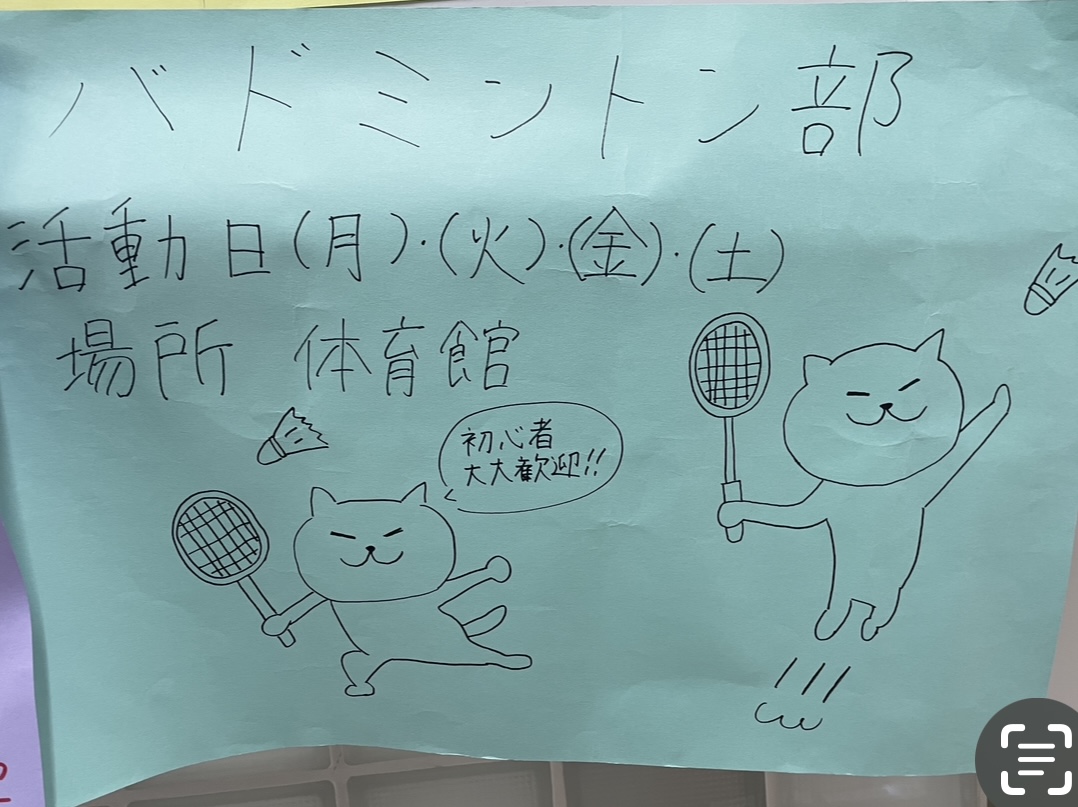 バドミントン部
活動日(月)・(火)・(金)・(土)
場所 体育館
初心者
大大歓迎!!